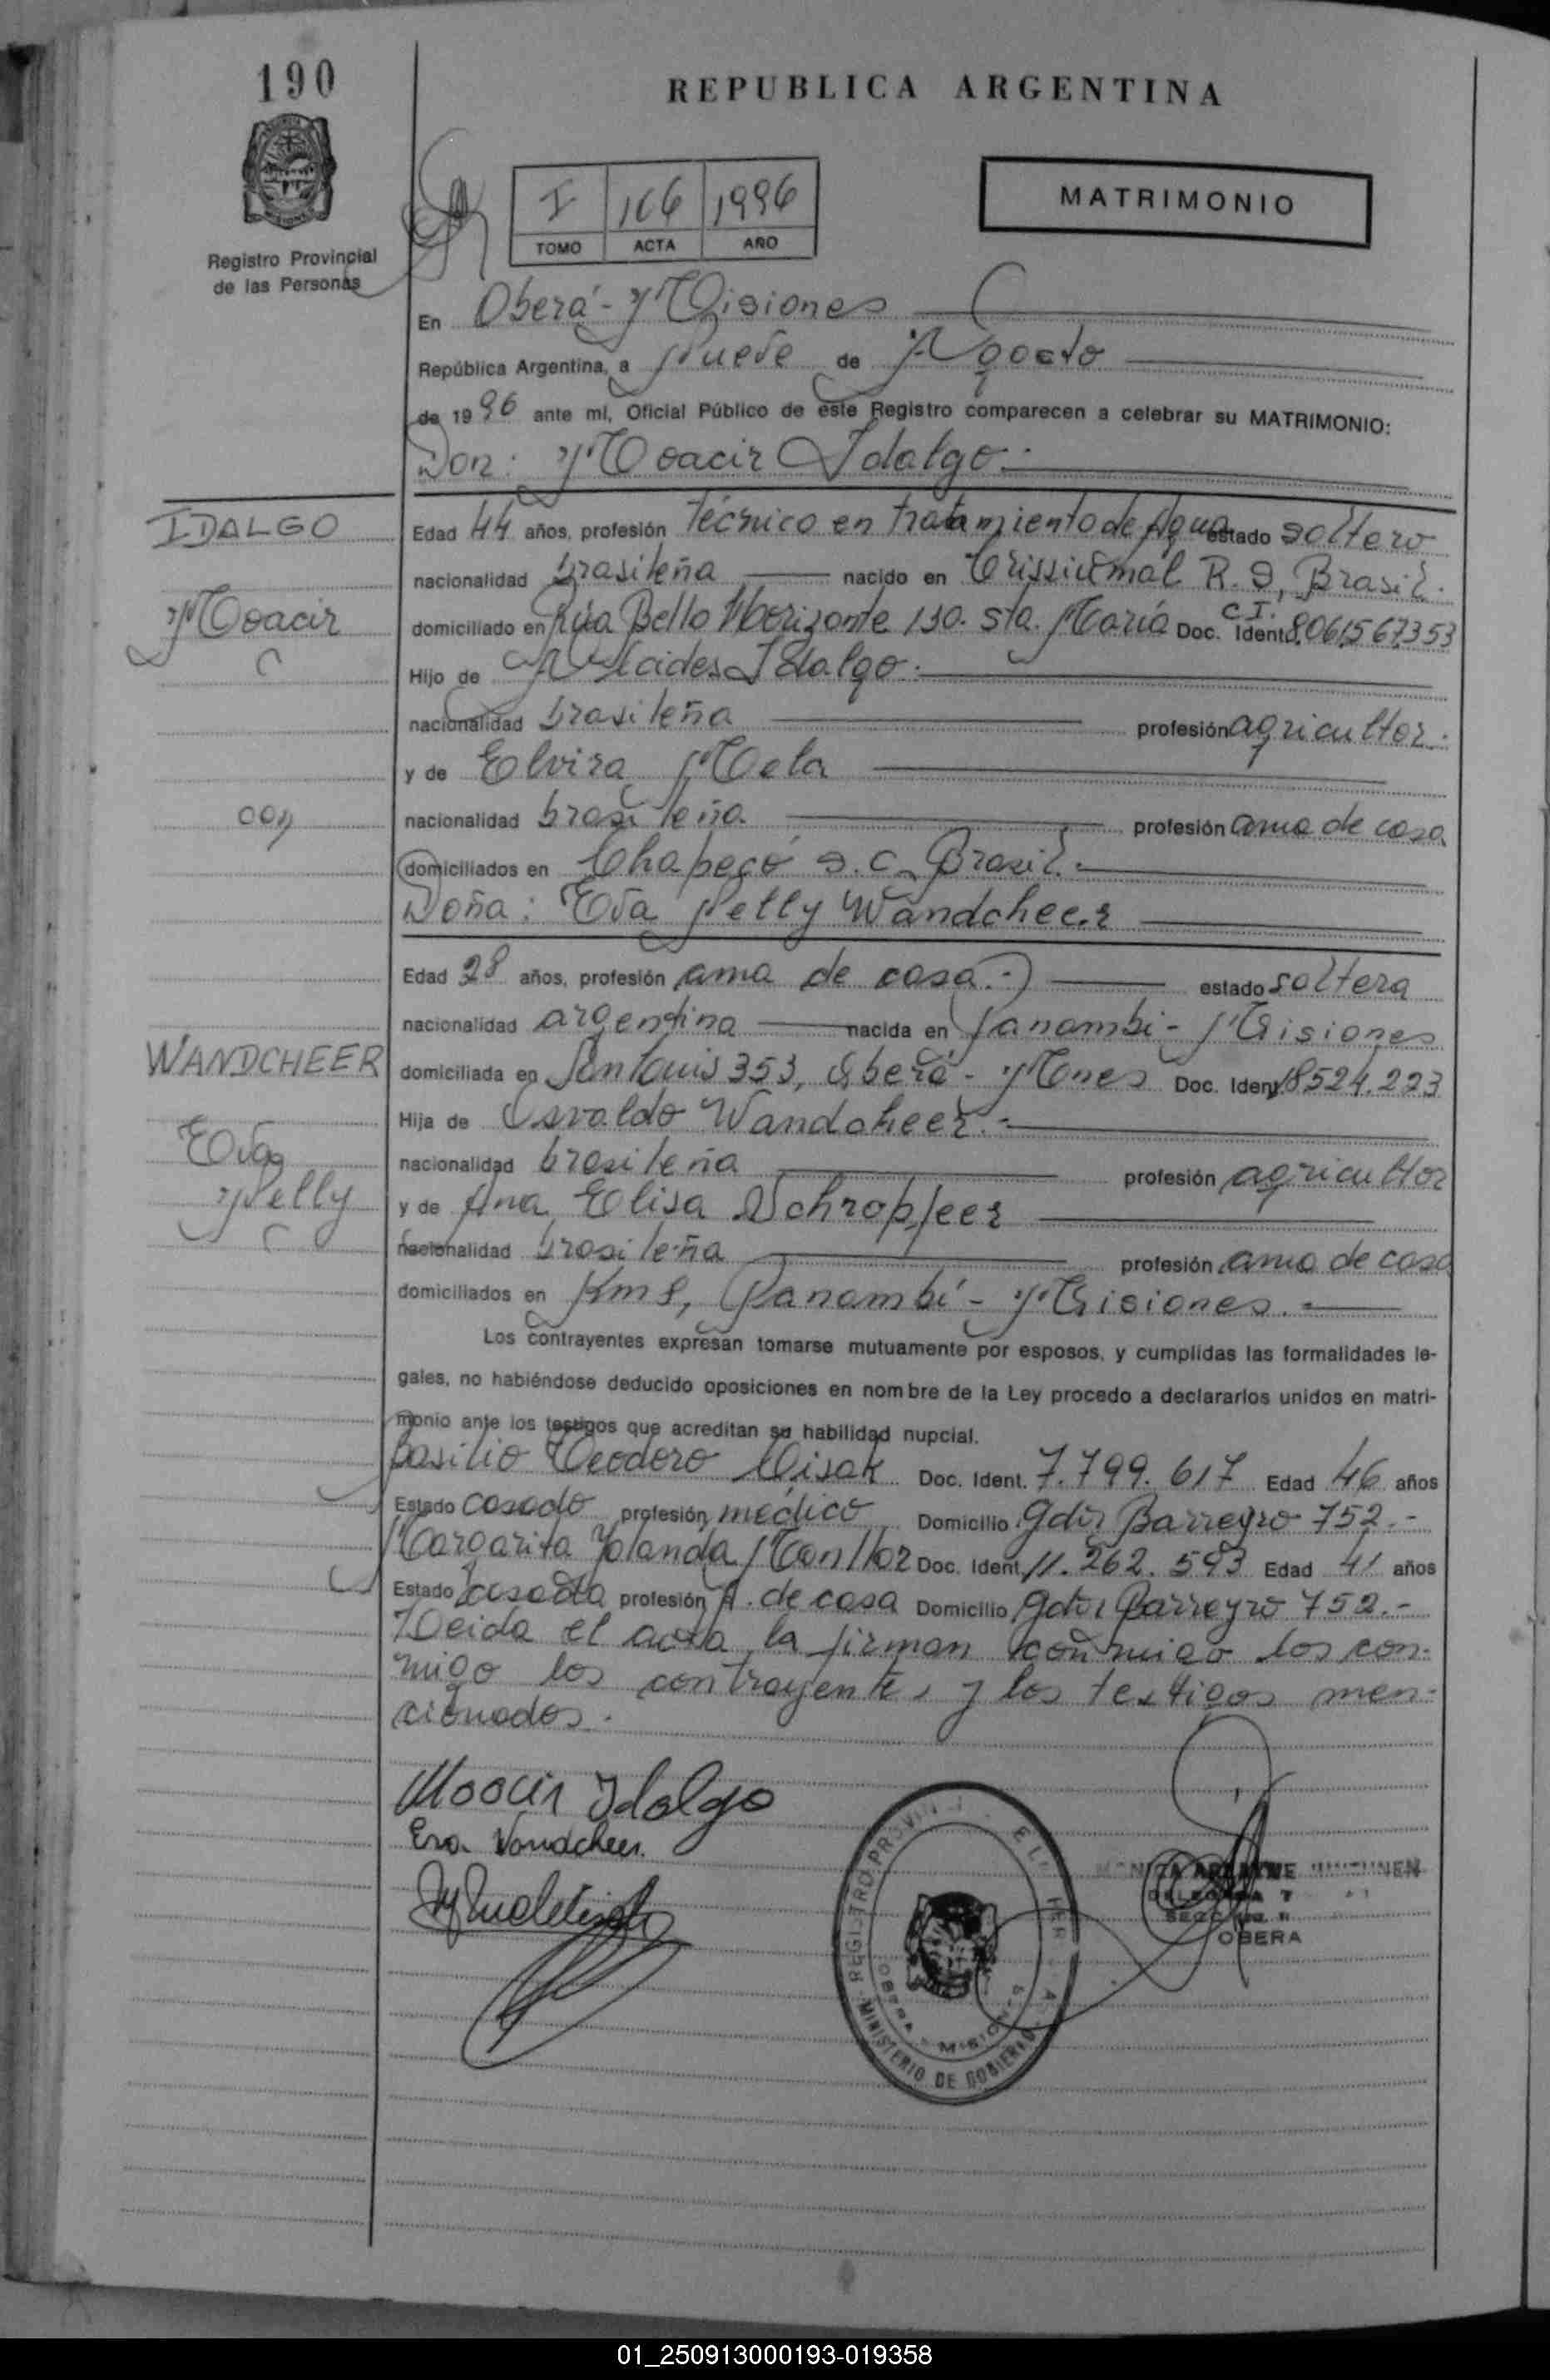 190
REPUBLICA ARGENTINA
Registro Provincial
de las Personas
I 166 1996
TOMO ACTA AÑO
MATRIMONIO
En Oberá - Misiones
República Argentina, a Nueve de Agosto
de 1996 ante mí, Oficial Público de este Registro comparecen a celebrar su MATRIMONIO:
Don: Moacir Idalgo.-
IDALGO
Moacir
con
Edad 44 años, profesión técnico en tratamiento de Agua estado soltero
nacionalidad brasileña nacido en Crissiumal R. S, Brasil.
domiciliado en Rua Bello Horizonte 130. Sta. María Doc. Ident. C.I. 8061567353
Hijo de Alcides Idalgo.-
nacionalidad brasileña profesión agricultor.
y de Elvira Mela
nacionalidad brasileña profesión ama de casa
domiciliados en Chapecó S.C. Brasil.-
Doña: Eva Nelly Wandcheer
WANDCHEER
Eva
Nelly
Edad 28 años, profesión ama de casa.- estado soltera
nacionalidad argentina nacida en Panambí - Misiones
domiciliada en San Luis 353, Oberá - Mnes Doc. Ident. 18524.223
Hija de Osvaldo Wandcheer.-
nacionalidad brasileña profesión agricultor
y de Ana Elisa Schropfeer
nacionalidad brasileña profesión ama de casa
domiciliados en Km 8, Panambí - Misiones.-
Los contrayentes expresan tomarse mutuamente por esposos, y cumplidas las formalidades le-
gales, no habiéndose deducido oposiciones en nombre de la Ley procedo a declararlos unidos en matri-
monio ante los testigos que acreditan su habilidad nupcial.
Basilio Teodoro Doc. Ident. 7.799.617 Edad 46 años
Estado casado profesión médico Domicilio Gdor Barreyro 752.-
Margarita Yolanda Doc. Ident. 11.262.593 Edad 41 años
Estado casada profesión A. de casa Domicilio Gdor Barreyro 752.-
Leida el acta, la firman conmigo los con-
migo los contrayentes y los testigos men-
cionados.
Moacir Idalgo
Eva Wandcheer.
REGISTRO PROVINCIAL
OBERA - MISIONES
MINISTERIO DE GOBIERNO
MONICA
OBERA
01_250913000193-019358